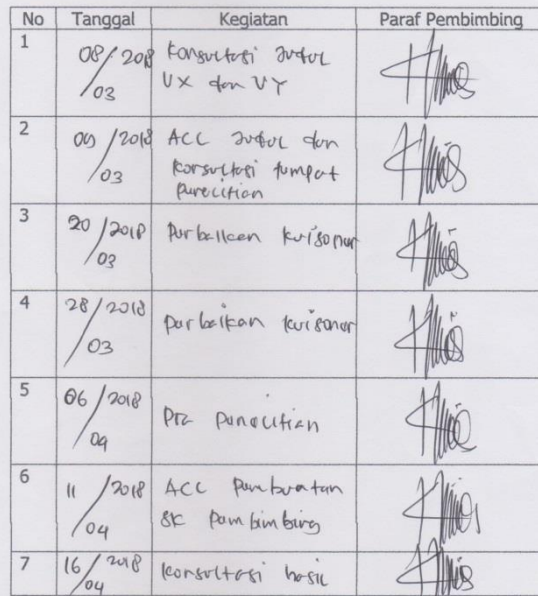 No Tanggal Kegiatan Paraf Pembimbing
1 08/2018 Konsultasi Judul
03 VX dan VY
2 09/2018 ACC Judul dan
03 Konsultasi tempat
penelitian
3 20/2018 Perbaikan kuisoner
03
4 28/2018 perbaikan kuisoner
03
5 06/2018 Pra penelitian
04
6 11/2018 ACC pembuatan
04 SK pembimbing
7 16/2018 Konsultasi hasil
04